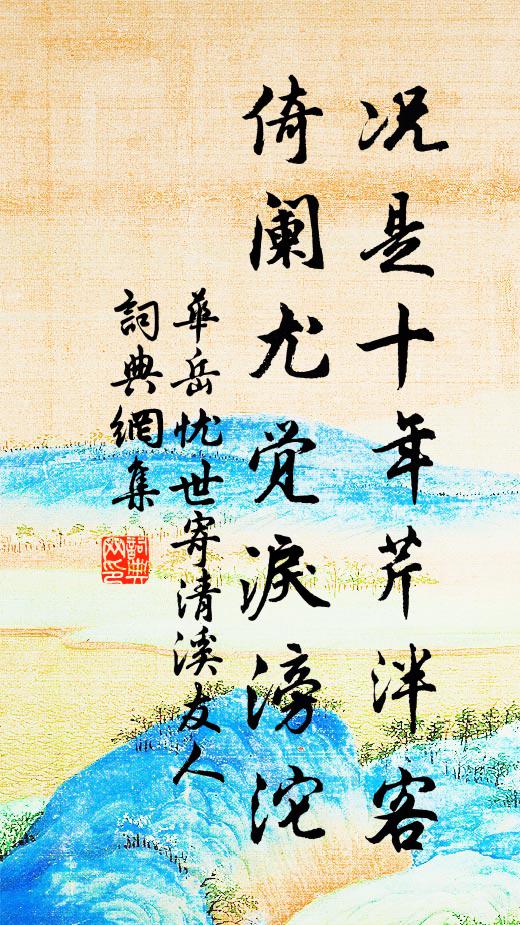 况是十年芹泮客
倚阑尤觉淚滂沱
華岳忧世寄清溪友人
詞典網集
詞典網印